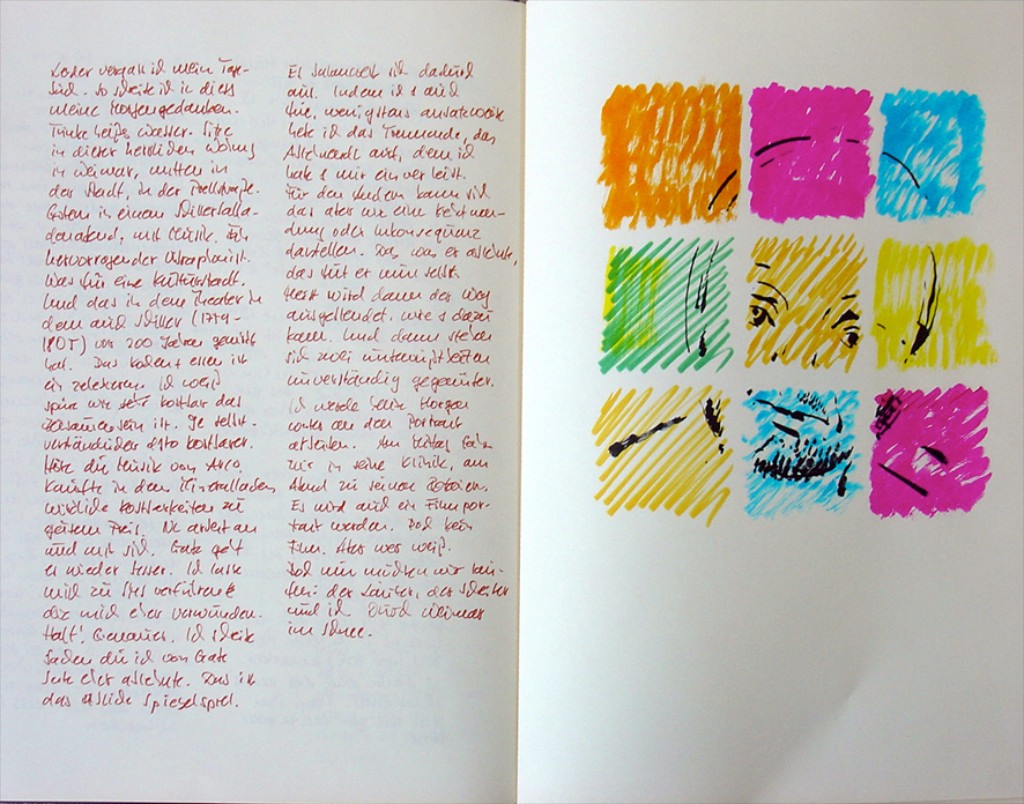 Leider vergaß ich mein Tage-
buch. So schreibe ich in dieses
meine Morgengedanken.
Trinke heißes Wasser. Sitze
in dieser herrlichen Wohnung
in Weimar, mitten in
der Stadt, in der
Gestern in einem Schillerballa-
denabend, mit Musik. Ein
hervorragender
Was für eine Kulturstadt.
Und das in dem Theater in
dem auch Schiller (1759-
1805) vor 200 Jahren gewirkt
hat. Das Baden + essen ist
ein zelebrieren. Ich weiß
spüre wie sehr kostbar das
Zusammensein ist. Je selbst-
verständlicher desto kostbarer.
Höre die Musik von Arvo.
Kaufte in dem Mineralladen
wirkliche Kostbarkeiten zu
gutem Preis. Sie arbeiten
und mit sich. geht
es wieder besser. Ich lasse
mich zu verführen
die mich eher verwunden.
Halt! Genauer. Ich schreibe
Sachen die ich von
Seite eher ablehnte. Das ist
das ehrliche Spiegelspiel.
Er balanciert sich dadurch
aus. Indem ich auch
hie, wenigstens ansatzweise
lebe ich das Trennende, das
Ablehnende aus, dem ich
halt mir ein verleibt.
Für den Anderen kann sich
das aber wie eine Bestrafen-
dung oder Inkonsequenz
darstellen. Das, was er ablehnte,
das tut er nun selbst.
Meist wird dann der Weg
ausgeblendet, wie's dazu
kam. Und dann stehen
sich zwei
unverständig gegenüber.
Ich werde heute Morgen
weiter an dem Portrait
arbeiten. Am Mittag fahren
wir in seine Klinik, am
Abend zu seinen
Es wird auch ein Filmpor-
trait werden. Doch kein
Film. Aber wer weiß.
Doch nun müssen wir lau-
fen: der Läufer, der Schreiber
und ich. Durch Weimar
im Schnee.